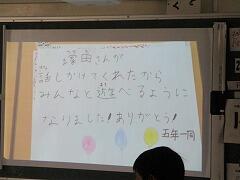 塚田さんが
話しかけてくれたから
みんなと遊べるように
なりました!ありがとう!
五年一同